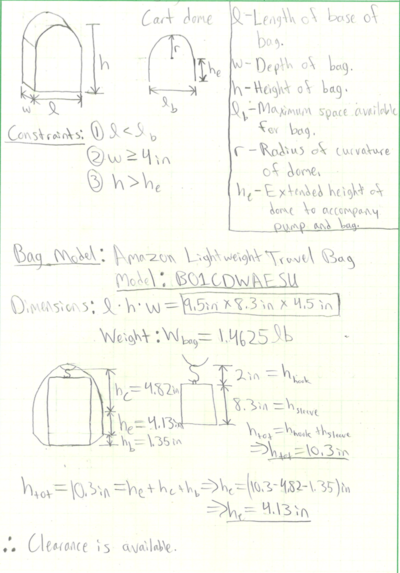 Cart dome
h
w
l
r
he
lb
l-Length of base of
bag.
w-Depth of bag.
h-Height of bag.
lb-Maximum space available
for bag.
r-Radius of curvature
of dome.
he-Extended height of
dome to accompany
pump and bag.
Constraints: ① l<lb
② w≥4in
③ h>he
Bag Model: Amazon Lightweight Travel Bag
Model: B01CDWAESU
Dimensions: l·h·w=9.5in×8.3in×4.5in
Weight: Wbag=1.4625lb
hc=4.82in
he=4.13in
hb=1.35in
2in=hhook
8.3in=hsleeve
htot=hhook+hsleeve
⇒htot=10.3in
htot=10.3in=he+hc+hb⇒he=(10.3-4.82-1.35)in
⇒he=4.13in
∴ Clearance is available.